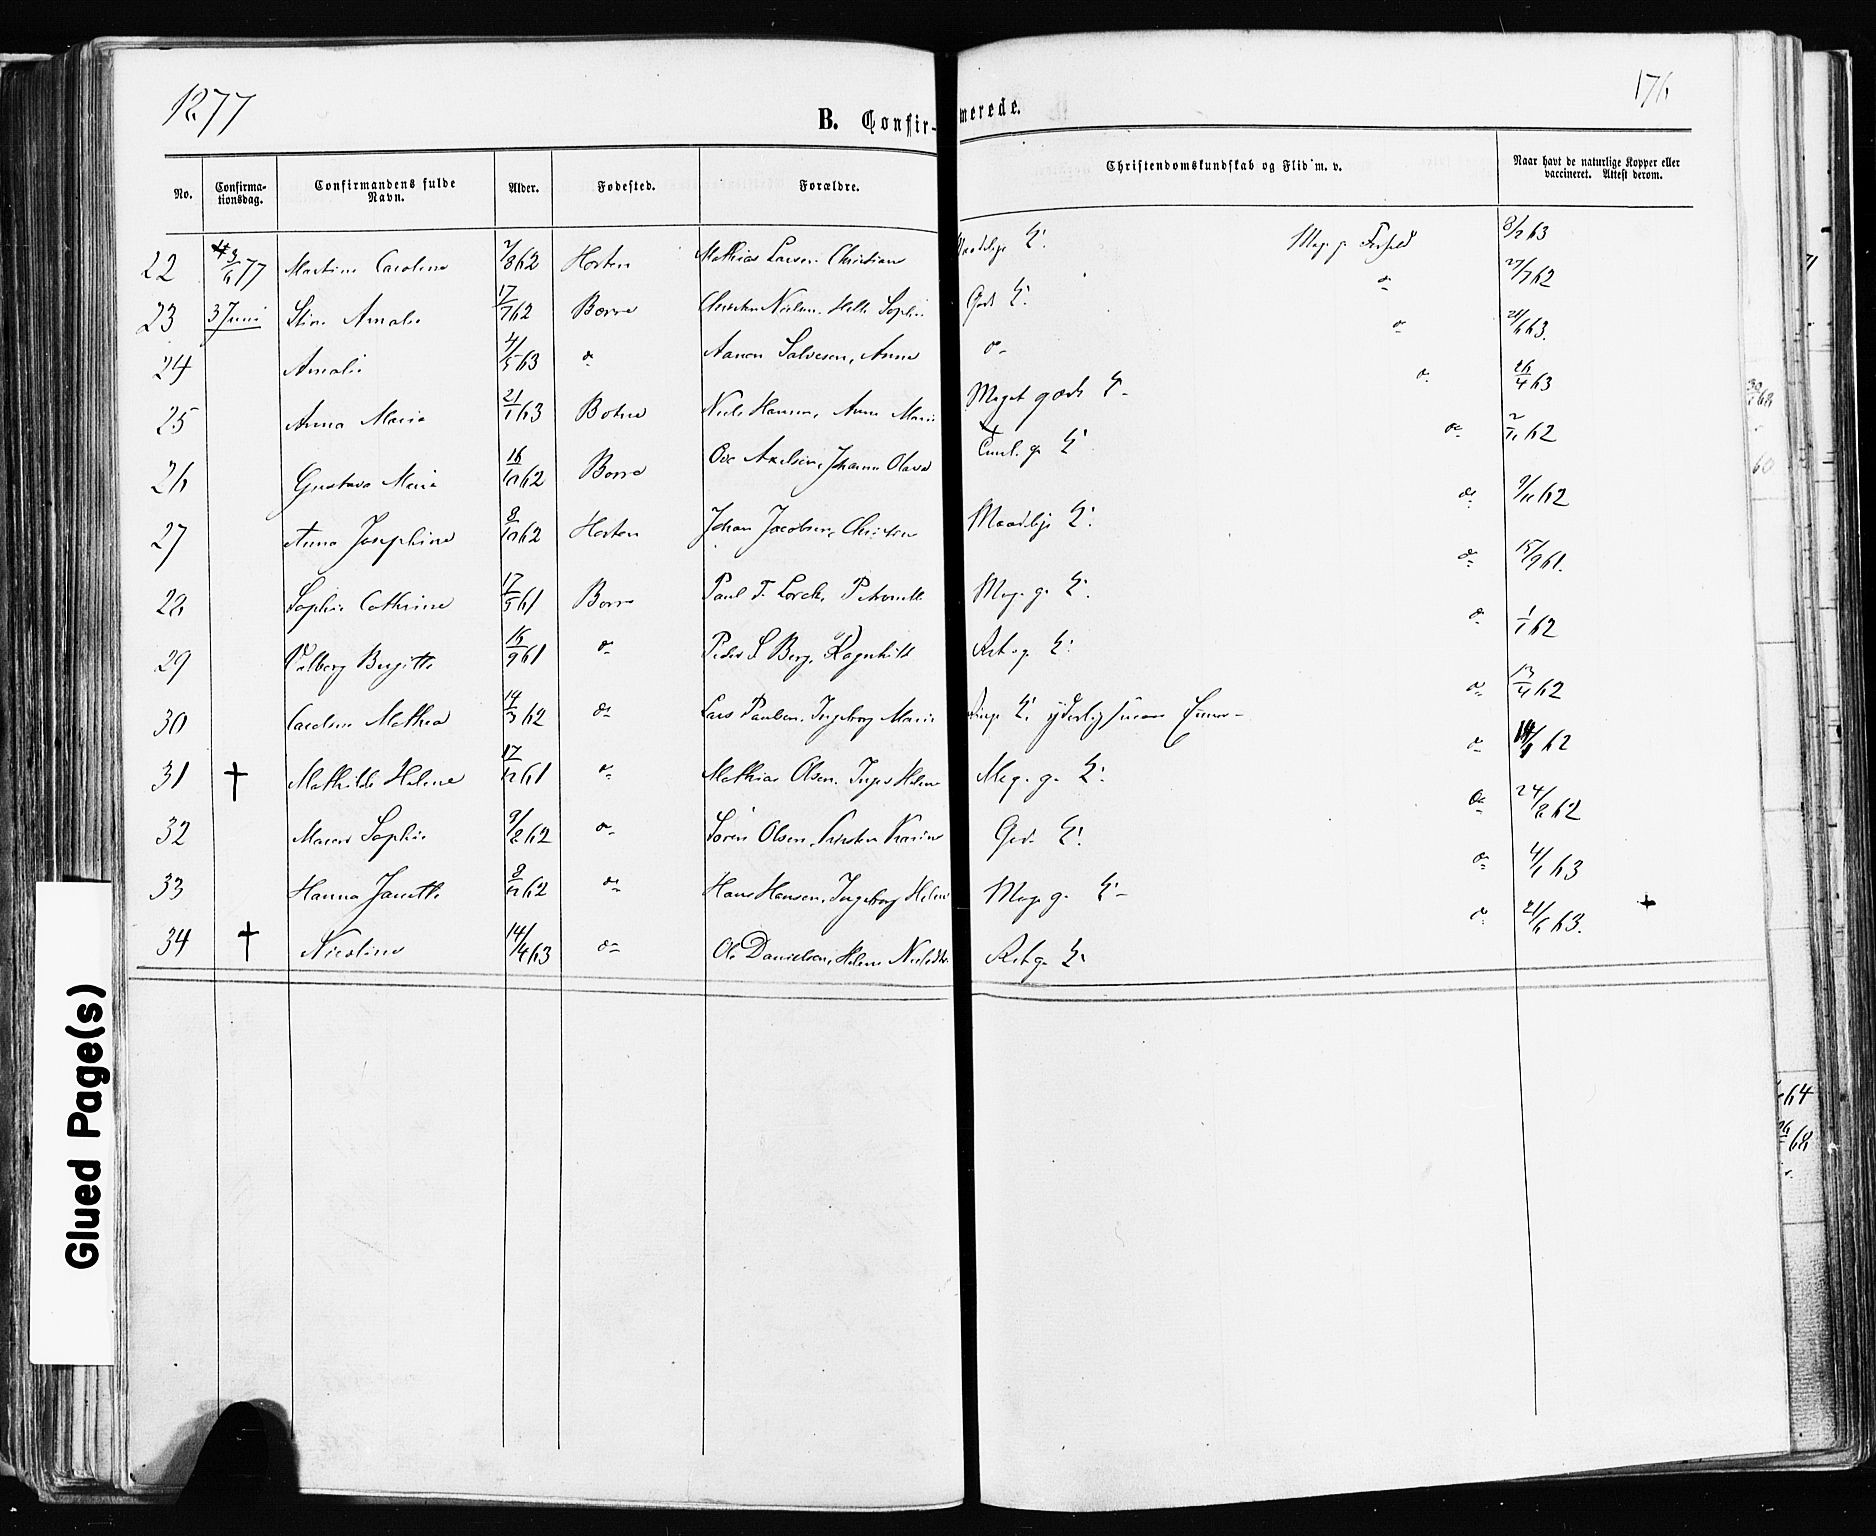 1877
176
B. Confirmerede.
No. Confirmationsdag. Confirmandens fulde Navn. Alder. Fødested. Forældre. Christendomskundskab og Flid m. v. Naar havt de naturlige Kopper eller vaccineret. Attest derom.
22 3/6 77 Martine Caroline 2/8 62 Horten Mathias Larsen Christiane Maadelige K. Meg. g. Forhold 8/2 63
23 3 Juni Stine Amalie 17/7 62 Borre Christen Nielsen. Helle Sophie Gode K. do 27/7 62
24 Amalie 4/5 63 do Aanon Salvesen, Anne do 21/6 63.
25 Anna Marie 21/1 63 Botne Niels Hansen, Anne Marie Meget gode K. do 26/4 63
26 Gustava Marie 16/10 62 Borre Ove Axelsen, Johanne Olava g. K. do 62
27 Anna Josephine 8/10 62 Horten Johan Jacobsen, Christine Maadelige K. do 9/11 62
28 Sophie Cathrine 17/5 61 Borre Paul F. Lorck, Petronelle Meg. g. K. do 15/9 61.
29 Valborg Birgitte 15/9 61 do Peder S Berg, Ragnhild Ret g. K. do 1/1 62
30 Caroline Mathea 14/3 62 do Lars Paulsen. Ingeborg Marie K. do 13/4 62
31 † Mathilde Helene 17/12 61 do Mathias Olsen. Inger Helene Meg. g. K. do 62
32 Maren Sophie 9/2 62 do Søren Olsen, Kirsten Karine God K. do 24/8 62
33 Hanna Janette 8/12 62 do Hans Hansen, Ingeborg Helene Meg. g. K. do 4/1 63
34 † Nicoline 14/4 63 do Ole Danielsen, Helene Ret g. K. do 21/6 63. +
Glued Page(s)